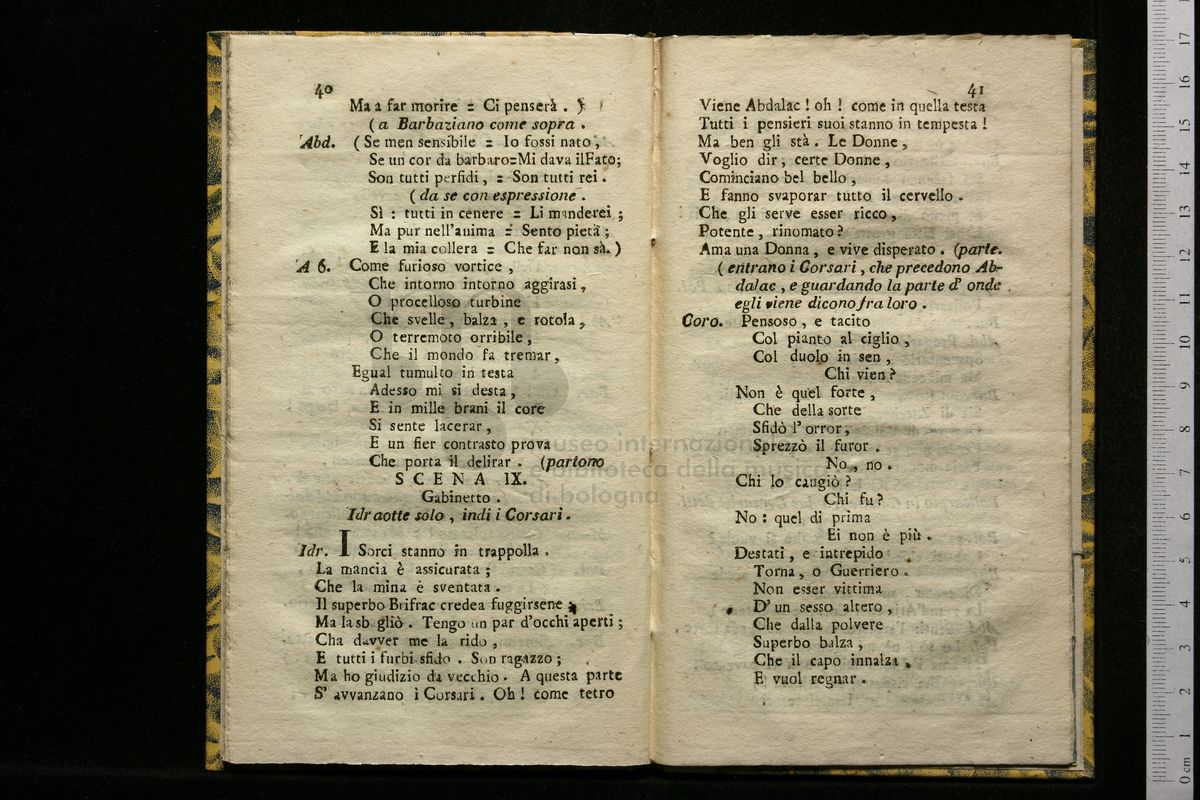 40
Ma a far morire = Ci penserà . )
( a Barbaziano come sopra .
Abd. ( Se men sensibile = Io fossi nato ,
Se un cor da barbaro=Mi dava ilFato;
Son tutti perfidi , = Son tutti rei .
( da se con espressione .
Sì : tutti in cenere = Li manderei ;
Ma pur nell'anima = Sento pietà ;
E la mia collera = Che far non sà. )
A 6. Come furioso vortice ,
Che intorno intorno aggirasi ,
O procelloso turbine
Che svelle , balza , e rotola ,
O terremoto orribile ,
Che il mondo fa tremar ,
Egual tumulto in testa
Adesso mi si desta ,
E in mille brani il core
Si sente lacerar ,
E un fier contrasto prova
Che porta il delirar . (partono
SCENA IX.
Gabinetto .
Idraotte solo , indi i Corsari .
Idr. I Sorci stanno in trappolla .
La mancia è assicurata ;
Che la mina è sventata .
Il superbo Brifrac credea fuggirsene ;
Ma la sb gliò . Tengo un par d'occhi aperti ;
Cha davver me la rido ,
E tutti i furbi sfido . Son ragazzo ;
Ma ho giudizio da vecchio . A questa parte
S' avvanzano i Corsari . Oh ! come tetro
41
Viene Abdalac ! oh ! come in quella testa
Tutti i pensieri suoi stanno in tempesta !
Ma ben gli stà . Le Donne ,
Voglio dir , certe Donne ,
Cominciano bel bello ,
E fanno svaporar tutto il cervello .
Che gli serve esser ricco ,
Potente , rinomato ?
Ama una Donna , e vive disperato . (parte.
( entrano i Corsari , che precedono Ab-
dalac , e guardando la parte d' onde
egli viene dicono fra loro .
Coro. Pensoso , e tacito
Col pianto al ciglio ,
Col duolo in sen ,
Chi vien ?
Non è quel forte ,
Che della sorte
Sfidò l' orror ,
Sprezzò il furor .
No , no .
Chi lo cangiò ?
Chi fu ?
No : quel di prima
Ei non è più .
Destati , e intrepido
Torna , o Guerriero .
Non esser vittima
D' un sesso altero ,
Che dalla polvere
Superbo balza ,
Che il capo innalza ,
E vuol regnar .
museo internazionale
e biblioteca della musica
di bologna
0 cm 1 2 3 4 5 6 7 8 9 10 11 12 13 14 15 16 17